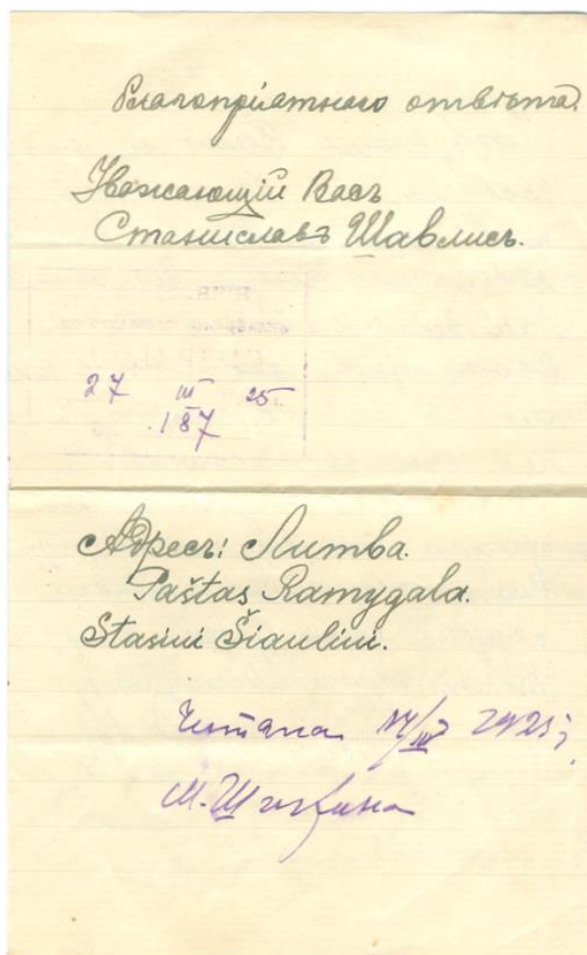 благопріятнаго отвѣта.
Уважающій Васъ
Станиславъ Шавлисъ.
27 III 25
187
Адресъ: Литва.
Paštas Ramygala.
Stasiui Šiauliui.
Читана
М.